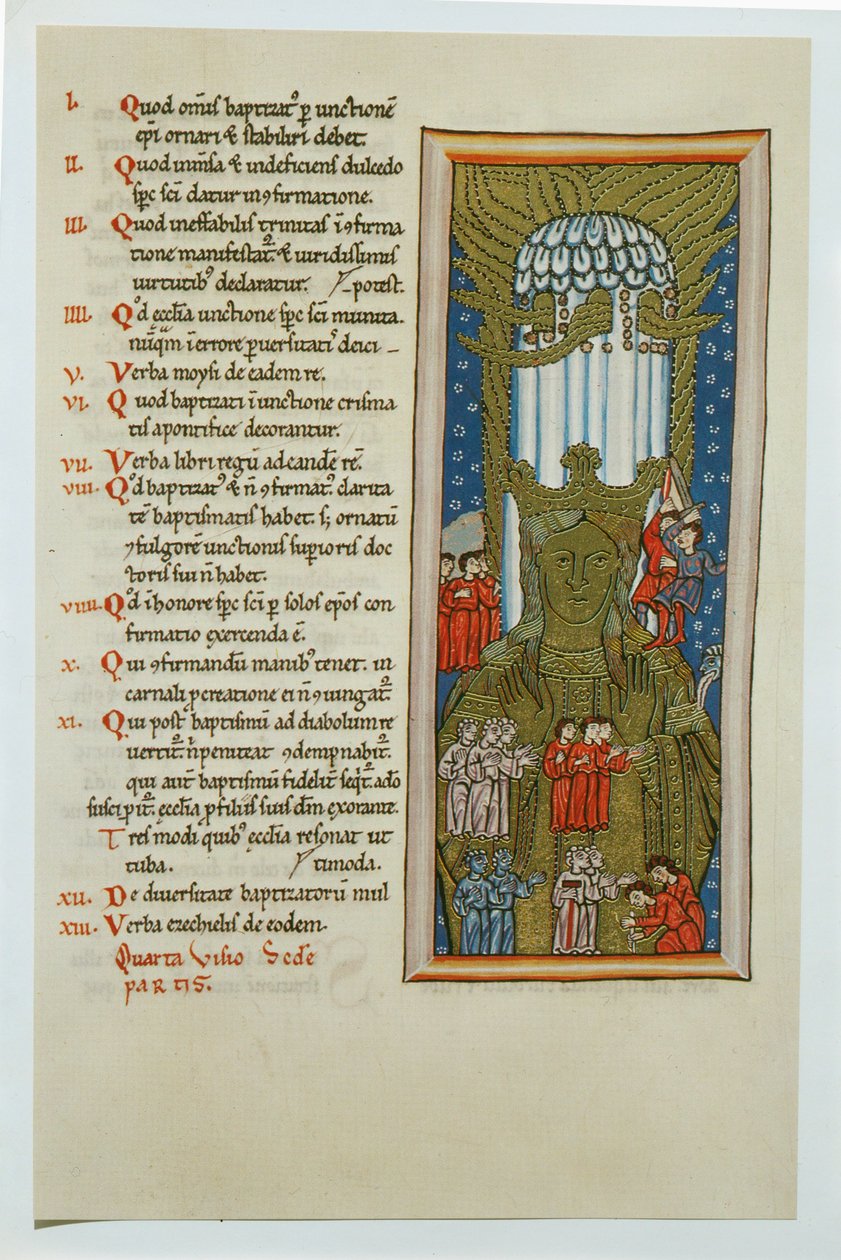 I. Quod om̅is baptizat᾿ p̲ unctione̅
ep̅i ornari & stabiliri debet.
II. Quod inm̅sa & indeficiens dulcedo
sp̅c sc̅i datur in ꝯfirmatione.
III. Quod ineffabilis trinitas i̅ ꝯfirma
tione manifestat᾿ & uiridissimis
uirtutib᾿ declaratur. potest.
IIII. Qͦd eccl̅ia unctione sp̅c sc̅i munita.
nu̅q̅m i̅ errore peruersitatis deici
V. Verba moysi de eadem re.
VI. Quod baptizati i̅ unctione crisma
tis a pontifice decorantur.
VII. Verba libri regu̅ ad eande̅ re̅.
VIII. Qͦd baptizat᾿ & n̅ ꝯfirmat᾿ clarita
te̅ baptismatis habet. s; ornatu̅
ꝯ fulgore̅ unctionis sup̲ioris doc
toris sui n̅ habet.
VIIII. Qͦd i̅ honore sp̅c sc̅i p̲ solos ep̅os con
firmatio exercenda e̅.
X. Qui ꝯfirmandu̅ manib᾿ tenet. in
carnali p̲creatione ei n̅ ꝯiungat᾿.
XI. Qui post baptismu̅ ad diabolum re
uertit᾿. n̅ peniteat ꝯdempnabit᾿.
qui aut̅ baptismu̅ fidelit̅ seq̅t᾿. a do̅
suscipit᾿. eccl̅ia p̲ filiis suis dm̅ exorante.
Tres modi quib᾿ eccl̅ia resonat ut
tuba. timoda.
XII. De diuersitate baptizatoru̅ mul
XIII. Verba ezechielis de eodem.
Quarta Visio Scd̅e
partis.